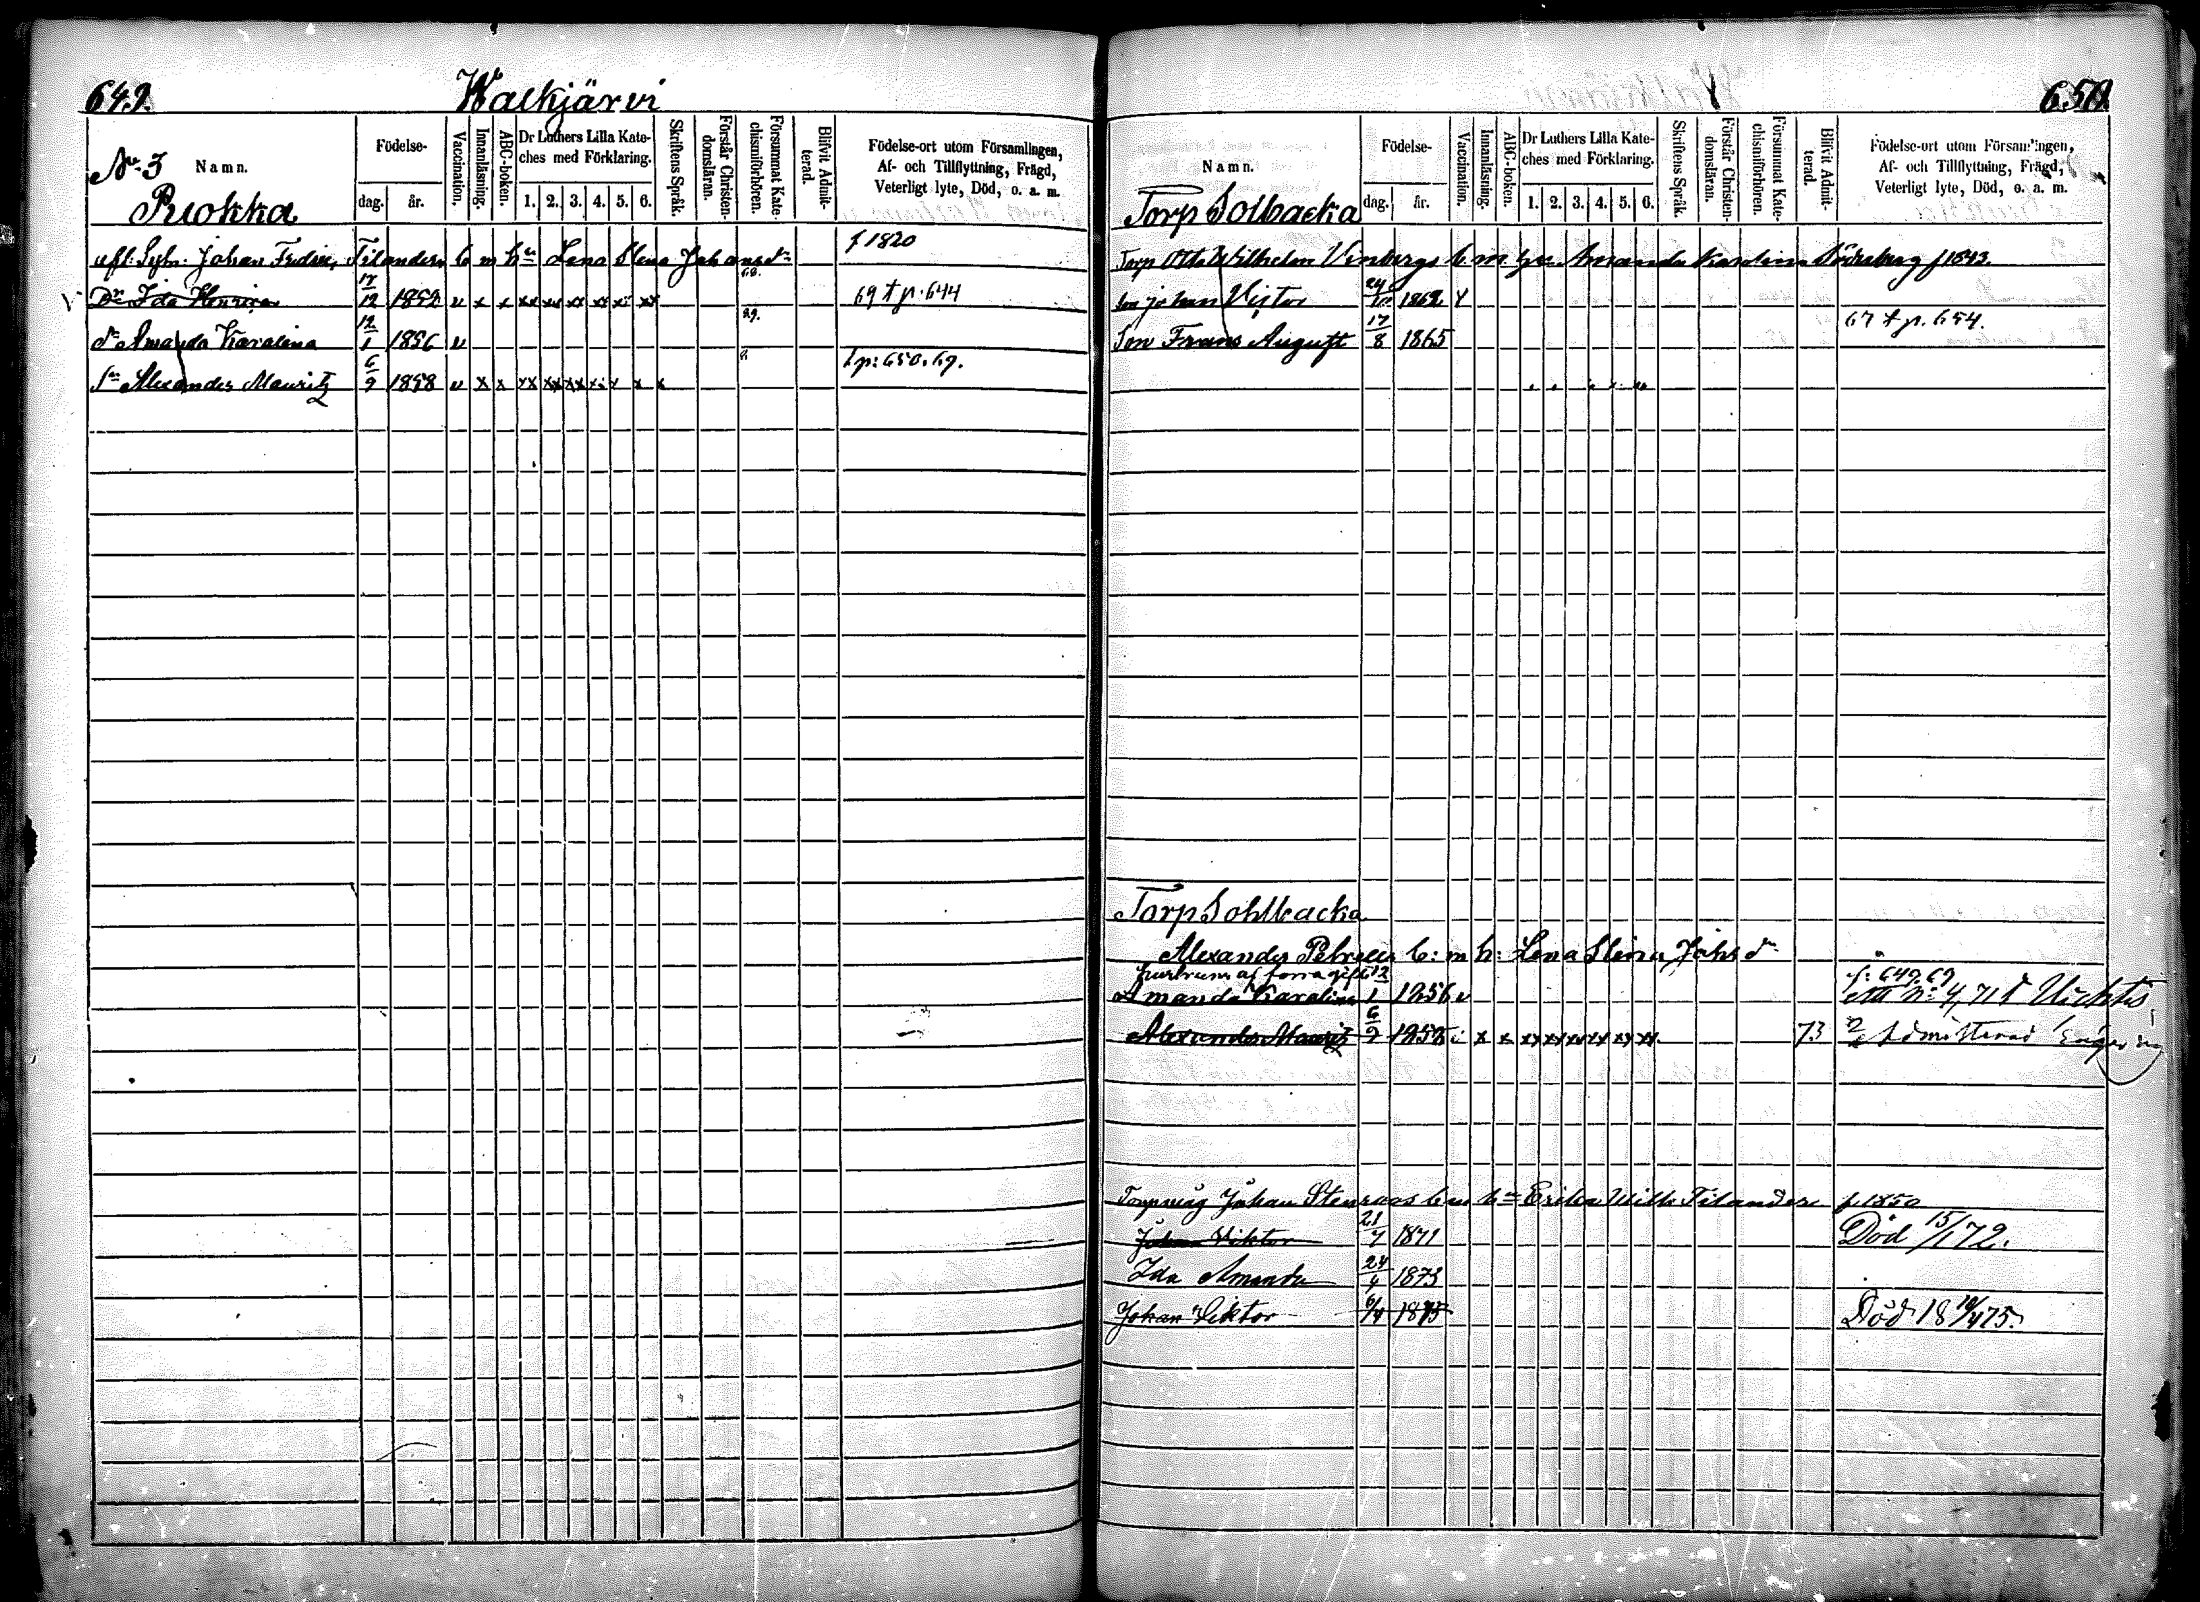 649.
Walkjärvi
Nr 3
Namn.
Ruokka
Födelse-
dag. år.
Vaccination.
Innanläsning.
ABC-boken.
Dr Luthers Lilla Kate-
ches med Förklaring.
1. 2. 3. 4. 5. 6.
Skriftens Språk.
Förstår Christen-
domsläran.
Försummat Kate-
chismiförhören.
Blifvit Admit-
terad.
Födelse-ort utom Församlingen,
Af- och Tillflyttning, Frägd,
Veterligt lyte, Död, o. a. m.
Johan Fredric Tilanders b m hu Lena Stena Johansdr f 1820
Dr Ida Henrica 17/12 1852 v x x xx xx xx xx xx xx 68. 69 t p. 644
dr Amanda Karalina 12/1 1856 v 69.
sn Alexander Mauritz 6/9 1858 v x x xx xx xx x x x t p: 650. 69.
650.
Namn.
Torp Solbacka
Födelse-
dag. år.
Vaccination.
Innanläsning.
ABC-boken.
Dr Luthers Lilla Kate-
ches med Förklaring.
1. 2. 3. 4. 5. 6.
Skriftens Språk.
Förstår Christen-
domsläran.
Försummat Kate-
chismiförhören.
Blifvit Admit-
terad.
Födelse-ort utom Församlingen,
Af- och Tillflyttning, Frägd,
Veterligt lyte, Död, o. a. m.
Torp Otto Wilhelm Vinbergs b m hu Amanda Karolina Söderberg f 1843.
son Johan Victor 24/10 1862 v
Son Frans August 17/8 1865 67 t p. 654.
Torp Sohlbacka
Alexander b: m h: Lena Stina Johsdr
hustruns af förra gifte
Amanda Karalina 12/1 1856 v f: 649, 69 Nr 4, 71 t Wichtis
Alexander Mauritz 6/9 1858 x x xx xx xx xx xx xx 73 Admitterad
Torpmåg Johan Stenroos b m hu Erika Wilh. Tilander f. 1850
Johan Viktor 21/7 1871 Död 15/1 72.
Ida Amanda 24/4 1873
Johan Viktor 6/4 1875 Död 18 10/4 75.